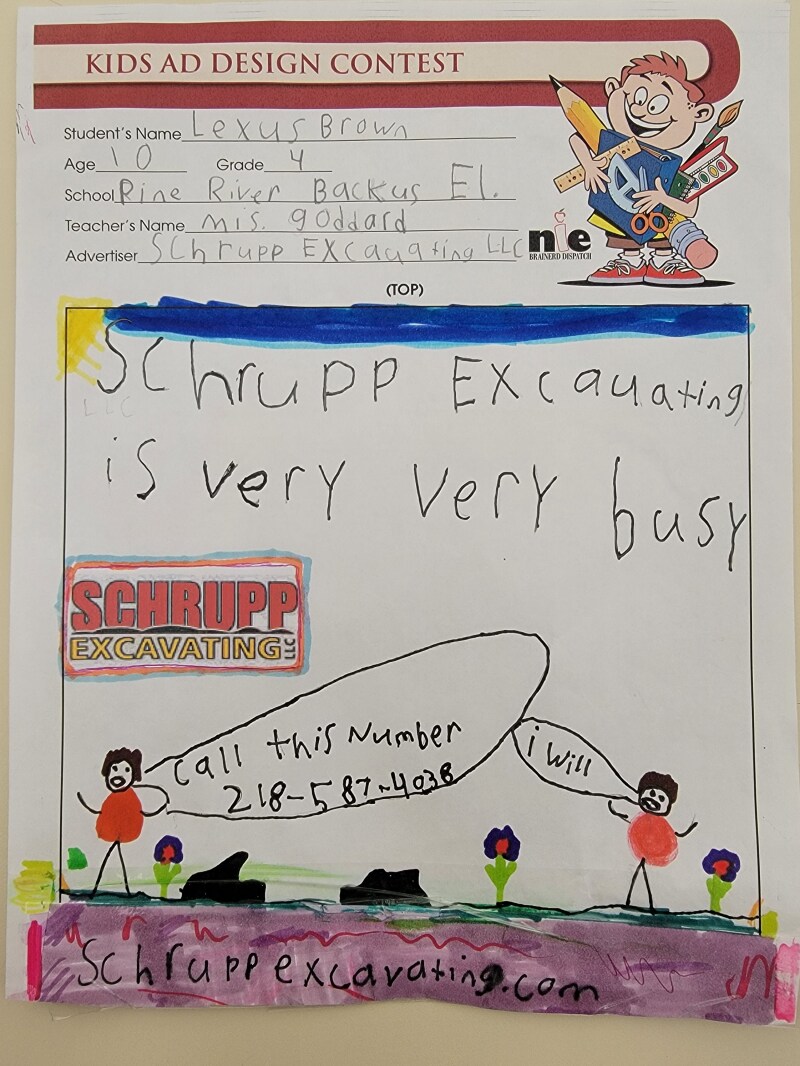 KIDS AD DESIGN CONTEST
Student's Name Lexus Brown
Age 10 Grade 4
School Pine River Backus El.
Teacher's Name mis. goddard
Advertiser Schrupp EXcauating LLC
nie
BRAINERD DISPATCH
(TOP)
Schrupp EXcauating
LLC
is very very busy
SCHRUPP
EXCAVATING LLC
call this Number
218-587-4038
i will
Schruppexcavating.com